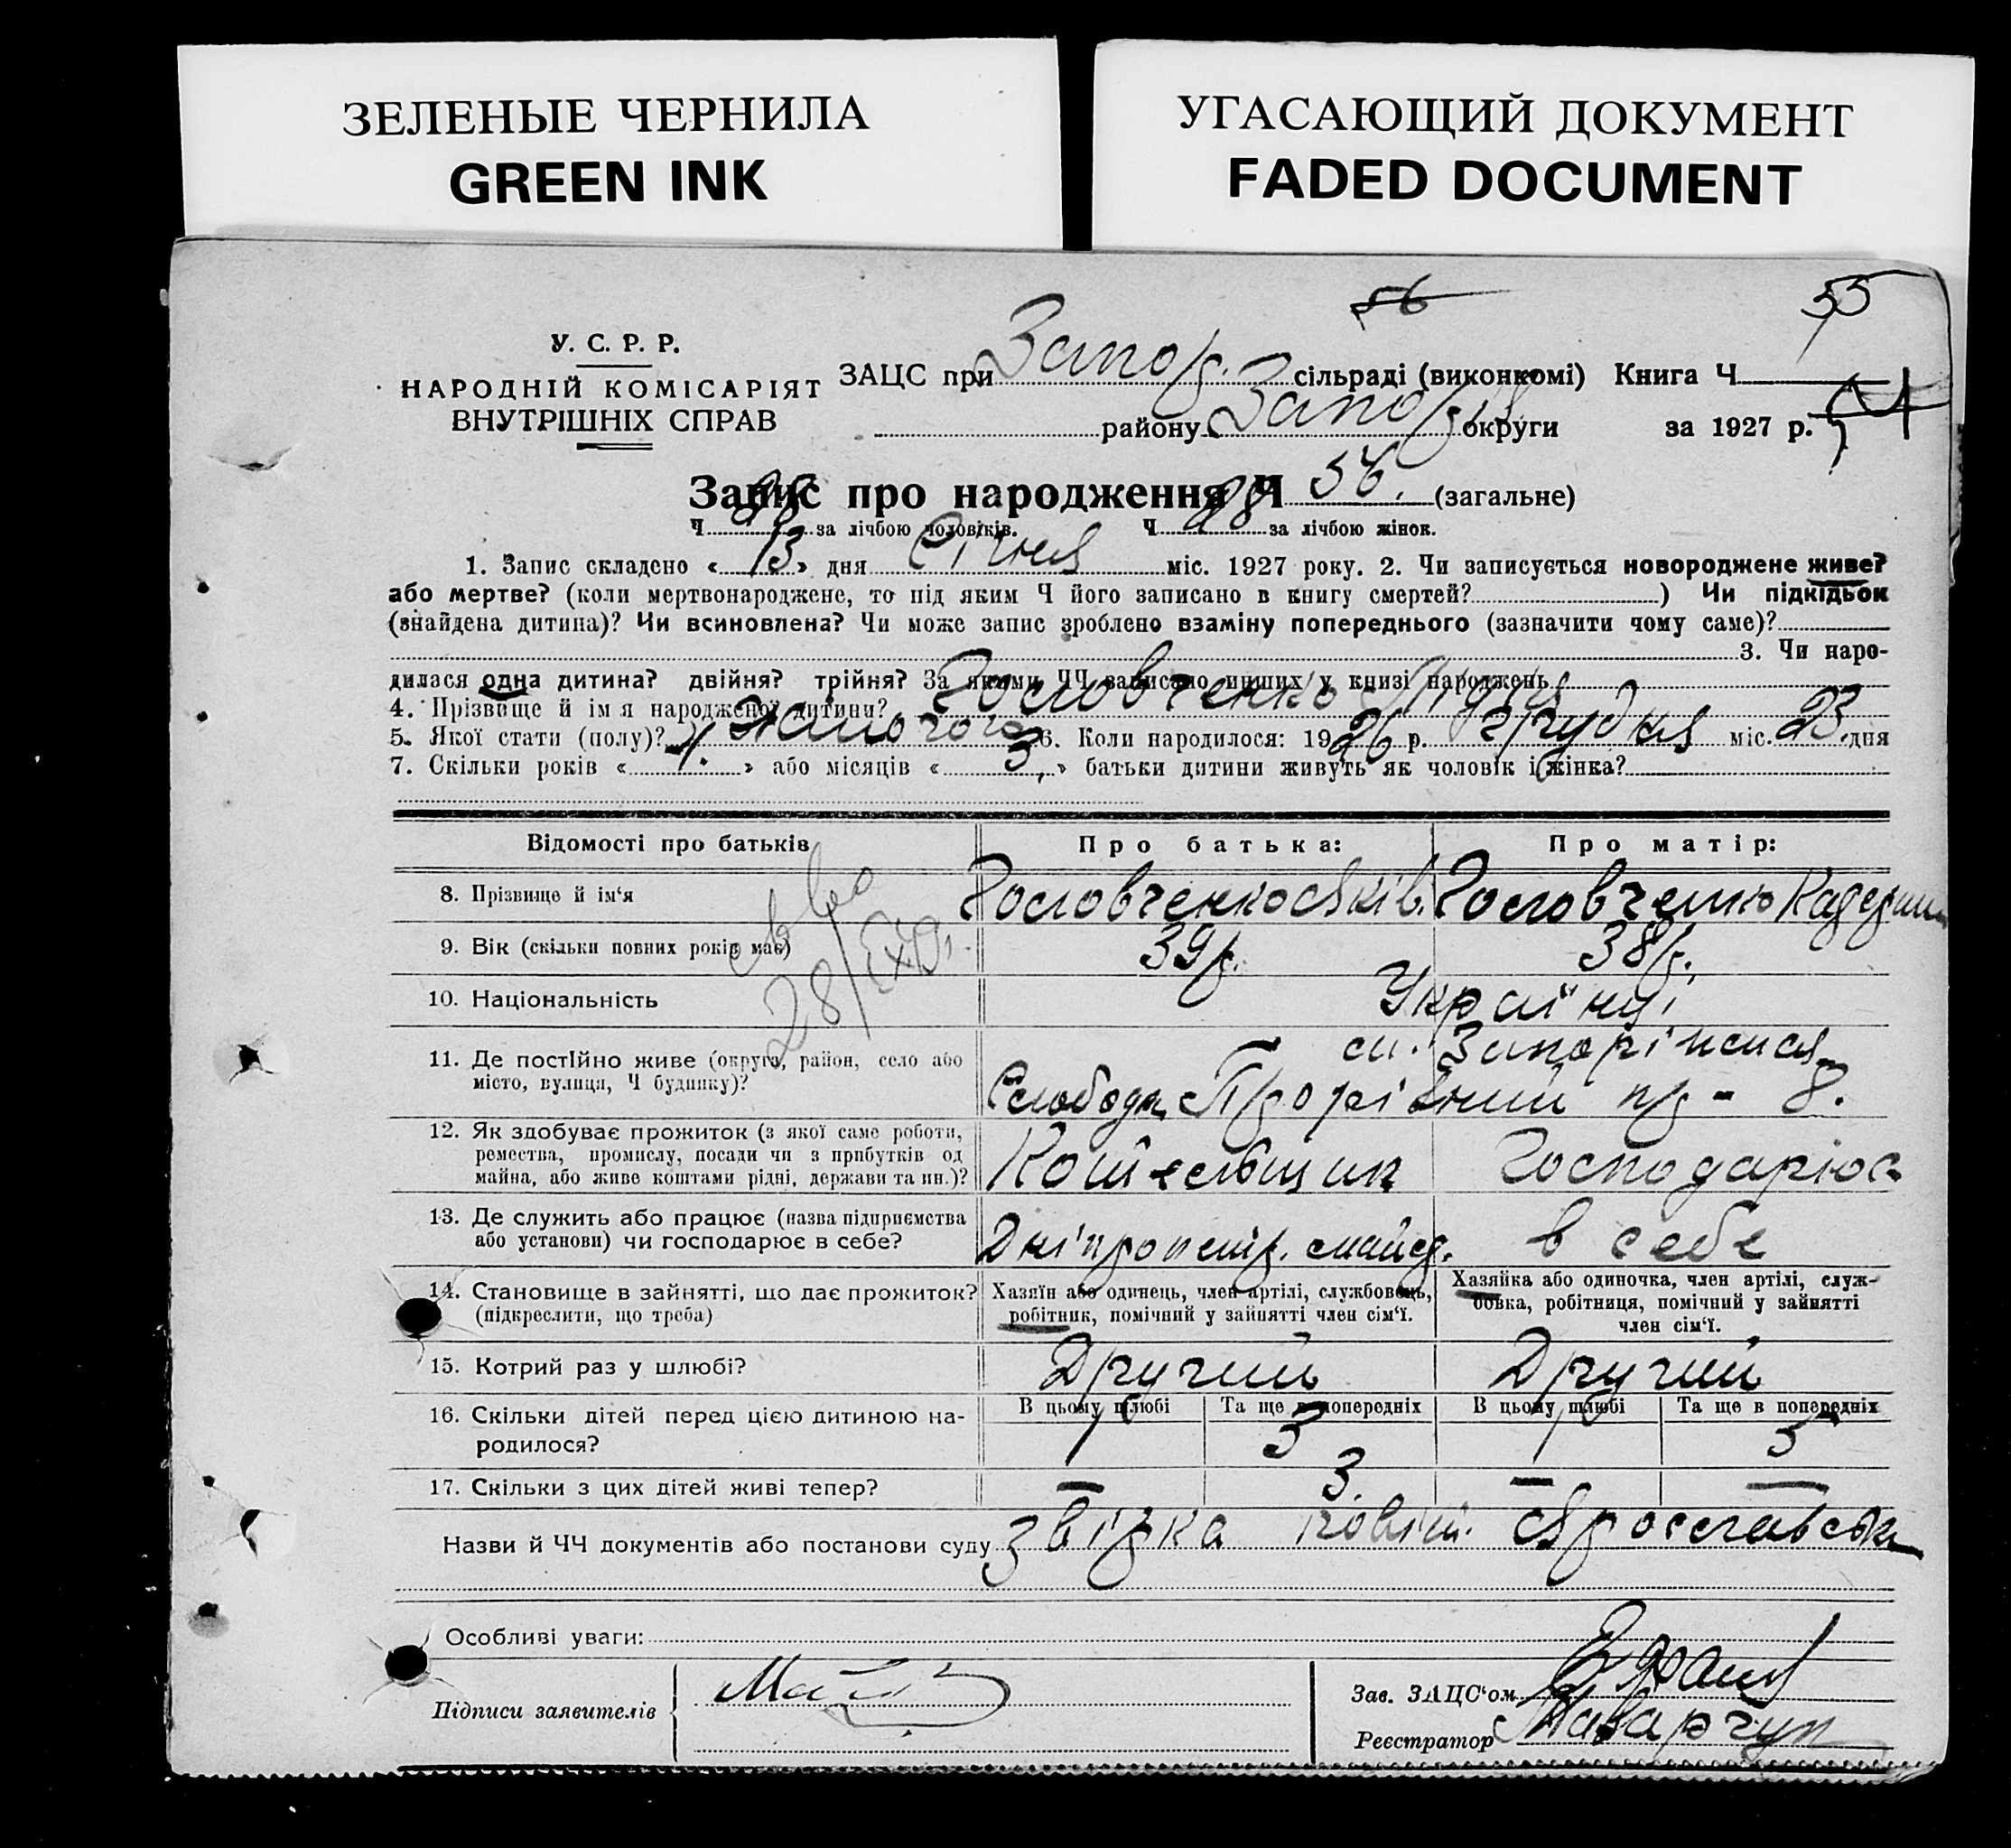 ЗЕЛЕНЫЕ ЧЕРНИЛА
GREEN INK
УГАСАЮЩИЙ ДОКУМЕНТ
FADED DOCUMENT
56
55
У. С. Р. Р.
НАРОДНІЙ КОМІСАРІЯТ
ВНУТРІШНІХ СПРАВ
ЗАЦС при Запор. сільраді (виконкомі) Книга Ч
району Запор. округи за 1927 р.
Запис про народження Ч 56. (загальне)
Ч 28 за лічбою чоловіків. Ч 28 за лічбою жінок.
1. Запис складено « 13 » дня Січня міс. 1927 року. 2. Чи записується новороджене живе?
або мертве? (коли мертвонароджене, то під яким Ч його записано в книгу смертей? ) Чи підкідьок
(знайдена дитина)? Чи всиновлена? Чи може запис зроблено взаміну попереднього (зазначити чому саме)?
3. Чи наро-
дилася одна дитина? двійня? трійня? За якими ЧЧ записано инших у книзі народжень
4. Прізвище й ім я народженої дитини? Головченко Лідія
5. Якої стати (полу)? жіночого 6. Коли народилося: 1926 р. грудня міс. 23. дня
7. Скільки років « 1. » або місяців « 3 » батьки дитини живуть як чоловік і жінка?
Відомості про батьків
Про батька:
Про матір:
8. Прізвище й ім‘я
Головченко Яків.
Головченко
9. Вік (скільки повних років має)
39 р.
38 р.
10. Національність
Українці
11. Де постійно живе (округа, район, село або
місто, вулиця, Ч будинку)?
ст. Запоріжжя
Слобода, Прорізний пр - 8.
12. Як здобуває прожиток (з якої саме роботи,
ремества, промислу, посади чи з прибутків од
майна, або живе коштами рідні, держави та ин.)?
Котельщик
Господарює
13. Де служить або працює (назва підприємства
або установи) чи господарює в себе?
Дніпропетр. майст.
в себе
14. Становище в зайнятті, що дає прожиток?
(підкреслити, що треба)
Хазяїн або одинець, член артілі, службовець,
робітник, помічний у зайнятті член сім‘ї.
Хазяйка або одиночка, член артілі, служ-
бовка, робітниця, помічний у зайнятті
член сім‘ї.
15. Котрий раз у шлюбі?
Другий
Другий
16. Скільки дітей перед цією дитиною на-
родилося?
В цьому шлюбі
Та ще в попередніх
В цьому шлюбі
Та ще в попередніх
3
3
17. Скільки з цих дітей живі тепер?
—
3.
—
—
Назви й ЧЧ документів або постанови суду
Особливі уваги:
Підписи заявителів
Зав. ЗАЦС‘ом
Реєстратор